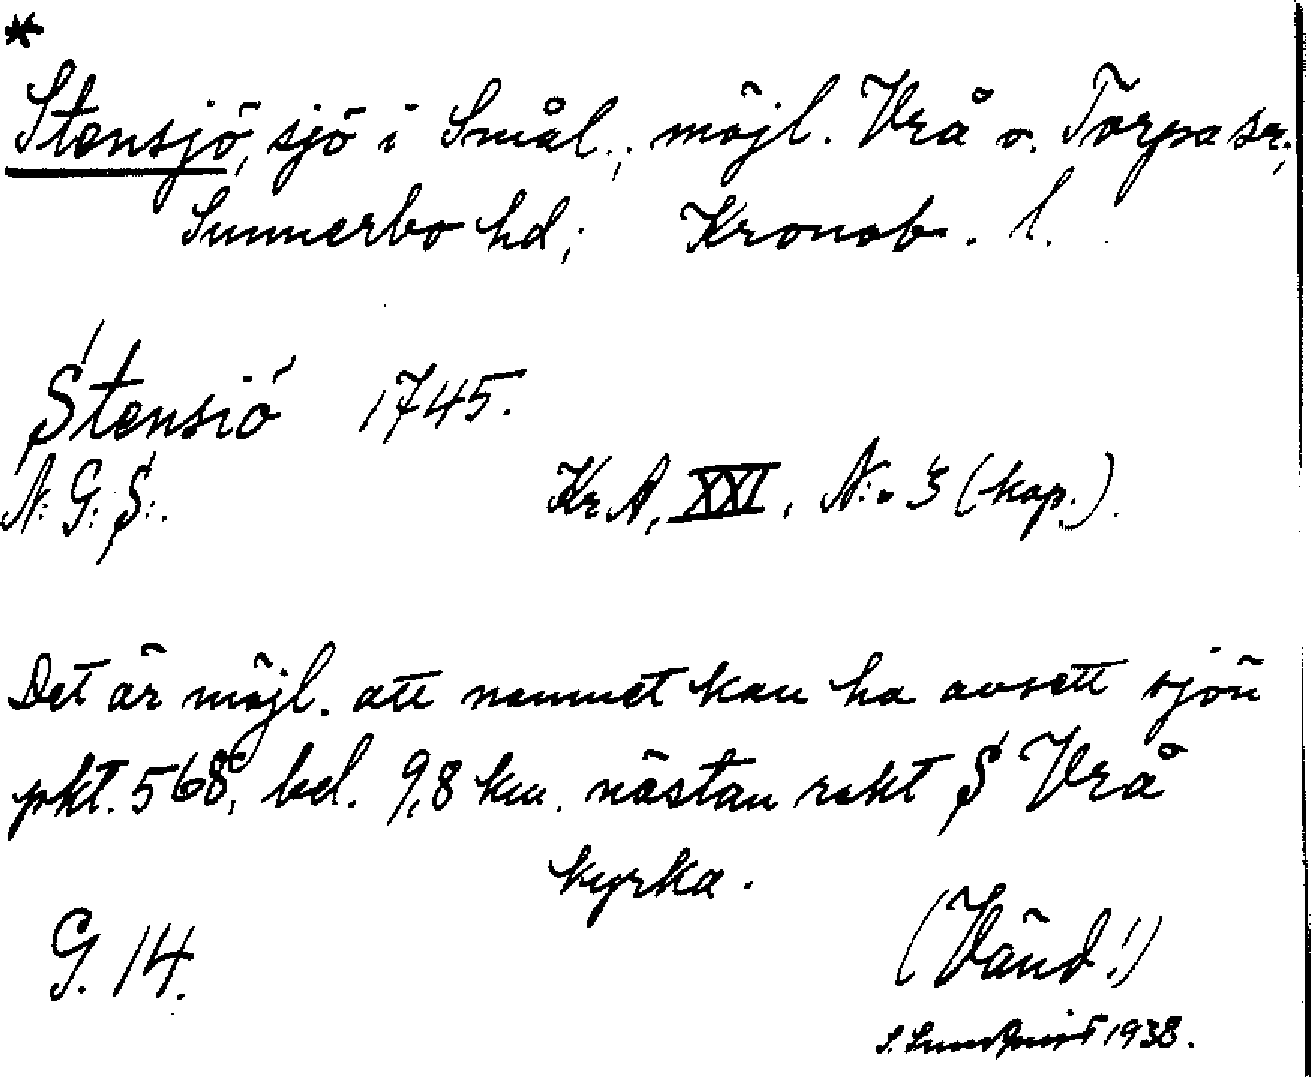 *
Stensjö, sjö i Smål., möjl. Vrå o. Torpa sr;
Sunnerbo hd; Kronob. l.
Stensiö 1745.
N: G: S:. Kr A, XXI, N:o 3 (kop.).
Det är möjl. att namnet kan ha avsett sjön
pkt. 568, bel. 9,8 km. nästan rakt S Vrå
kyrka.
G. 14. (Vänd!)
1938.